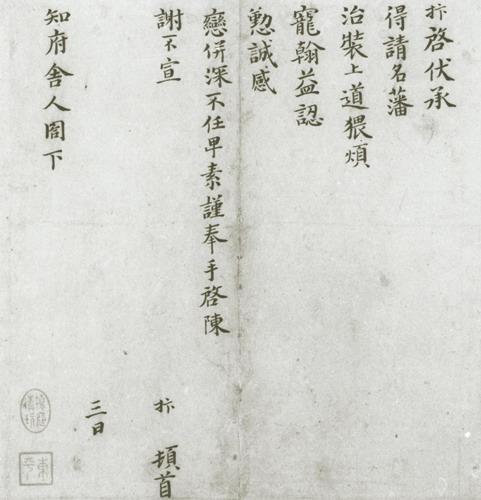 抃啓伏承
得請名藩
治裝上道猥煩
寵翰益認
懃誠感
戀併深不任早素謹奉手啓陳
謝不宣
抃 頓首
三日
知府舍人閤下